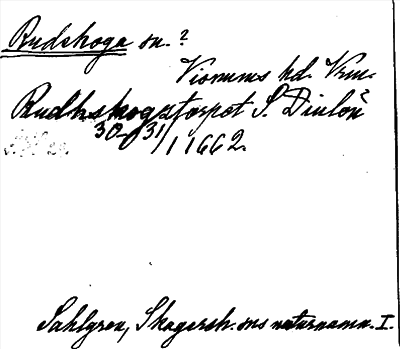 Rudskoga sn. ?
Visnums hd. Vrm.
Rudhskogstorpet S. Dinlön
30-31/1 1662.
Sahlgren, Skagersh. sns naturnamn. I.